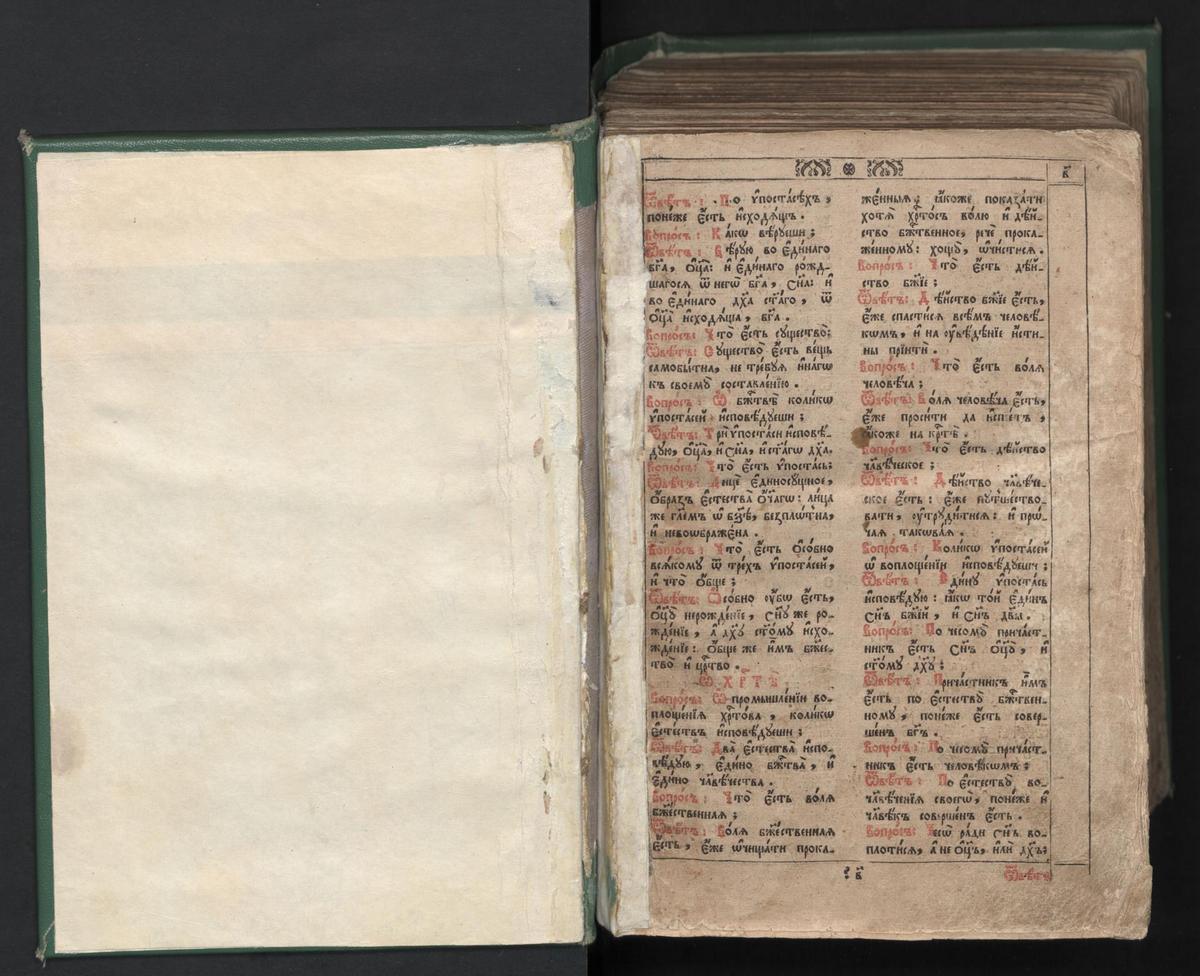 в҃
Ѿвѣ́тъ : По ѵ҆поста́сѣхъ ,
поне́же є҆́сть и҆сходѧ́щъ .
Вопро́съ : Ка́кѡ вѣ́рꙋеши ;
Ѿвѣ́тъ : Вѣ́рꙋю во є҆ди́наго
бг҃а , ѻ҆ц҃а̀ : и҆ є҆ди́наго ро́жд-
шагосѧ ѿ негѡ̀ бг҃а , сн҃а : и҆
во є҆ди́наго дх҃а ст҃а́го , ѿ
ѻ҆ц҃а̀ и҆сходѧ́ща , бг҃а .
Вопро́съ : Что̀ є҆́сть сꙋщество̀ ;
Ѿвѣ́тъ : Сꙋщество̀ є҆́сть ве́щь
самобы́тна , не тре́бꙋѧ и҆на́гѡ
къ своемꙋ̀ составле́нїю .
Вопро́съ : Ѡ҆ бж҃твѣ̀ коли́кѡ
ѵ҆поста́сей и҆сповѣ́дꙋеши ;
Ѿвѣ́тъ : Трѝ ѵ҆поста́си и҆сповѣ́-
дꙋю , ѻ҆ц҃а̀ , и҆ сн҃а , и҆ ст҃а́гѡ дх҃а .
Вопро́съ : Что̀ є҆́сть ѵ҆поста́сь ;
Ѿвѣ́тъ : Лицѐ є҆диносꙋ́щное ,
ѻ҆́бразъ є҆стества̀ ѻ҆́ч҃агѡ : лица̀
же гл҃емъ ѡ҆ бз҃ѣ , безпло́тна ,
и҆ невоѡбраже́на .
Вопро́съ : Что̀ є҆́сть ѻ҆со́бно
всѧ́комꙋ ѿ тре́хъ ѵ҆поста́сей ,
и҆ что̀ ѻ҆́бще ;
Ѿвѣ́тъ : Ѻ҆со́бно ᲂу҆́бѡ є҆́сть ,
ѻ҆ц҃ꙋ̀ нерожде́нїе , сн҃ꙋ же ро-
жде́нїе , а҆ дх҃ꙋ ст҃о́мꙋ и҆схо-
жде́нїе : ѻ҆́бще же и҆̀мъ бж҃ес-
тво̀ и҆ цр҃тво .
Ѡ҆ Х҃РТѢ̀
Вопро́съ : Ѡ҆ промышле́нїи во-
площе́нїѧ хр҃то́ва , коли́кѡ
є҆сте́ствъ и҆сповѣ́дꙋеши ;
Ѿвѣ́тъ : Два̀ є҆стества̀ и҆спо-
вѣ́дꙋю , є҆ди́но бж҃тва̀ , и҆
є҆ди́но чл҃вѣ́чества .
Вопро́съ : Что̀ є҆́сть во́лѧ
бж҃е́ственнаѧ ;
Ѿвѣ́тъ : Во́лѧ бж҃е́ственнаѧ
є҆́сть , є҆́же ѡ҆чища́ти прока-
же́нныѧ ; ꙗ҆́коже показа́ти
хотѧ̀ хр҃то́съ во́лю и҆ дѣ́й-
ство бж҃твенное , речѐ прока-
же́нномꙋ : хощꙋ̀ , ѡ҆чи́стисѧ .
Вопро́съ : Что̀ є҆́сть дѣ́й-
ство бж҃їе ;
Ѿвѣ́тъ : Дѣ́йство бж҃їе є҆́сть ,
є҆́же спасти́сѧ всѣ́мъ человѣ́-
кѡмъ , и҆ на ᲂу҆вѣ́дѣнїе и҆́сти-
ны прїитѝ .
Вопро́съ : Что̀ є҆́сть во́лѧ
человѣ́ча ;
Ѿвѣ́тъ : Во́лѧ человѣ́ча є҆́сть ,
є҆́же проси́ти да и҆спїе́тъ ,
ꙗ҆́коже на кр҃тѣ̀ .
Вопро́съ : Что̀ є҆́сть дѣ́йство
чл҃вѣ́ческое ;
Ѿвѣ́тъ : Дѣ́йство чл҃вѣ́че-
ское є҆́сть : є҆́же пꙋтше́ство-
вати , ᲂу҆трꙋди́тисѧ : и҆ прѡ́-
чаѧ такѡва́ѧ .
Вопро́съ : Коли́кѡ ѵ҆поста́сей
ѡ҆ воплоще́нїи и҆сповѣ́дꙋеши ;
Ѿвѣ́тъ : Є҆ди́нꙋ ѵ҆поста́сь
и҆сповѣ́дꙋю : ꙗ҆́кѡ то́й є҆ди́нъ
сн҃ъ бж҃їй , и҆ сн҃ъ дв҃ы .
Вопро́съ : По чесомꙋ̀ прича́ст-
никъ є҆́сть сн҃ъ ѻ҆ц҃ꙋ̀ , и҆
ст҃о́мꙋ дх҃ꙋ ;
Ѿвѣ́тъ : Прича́стникъ и҆̀мъ
є҆́сть по є҆стествꙋ̀ бж҃твен-
номꙋ , поне́же є҆́сть совер-
ше́нъ бг҃ъ .
Вопро́съ : По чесомꙋ̀ прича́ст-
никъ є҆́сть человѣ́кѡмъ ;
Ѿвѣ́тъ : По є҆стествꙋ̀ во-
чл҃вѣ́ченїѧ своегѡ̀ , поне́же и҆
чл҃вѣ́къ соверше́нъ є҆́сть .
Вопро́съ : Чесѡ̀ ра́ди сн҃ъ во-
плоти́сѧ , а҆ не ѻ҆ц҃ъ , и҆лѝ дх҃ъ ;
в҃
Ѿвѣ́тъ